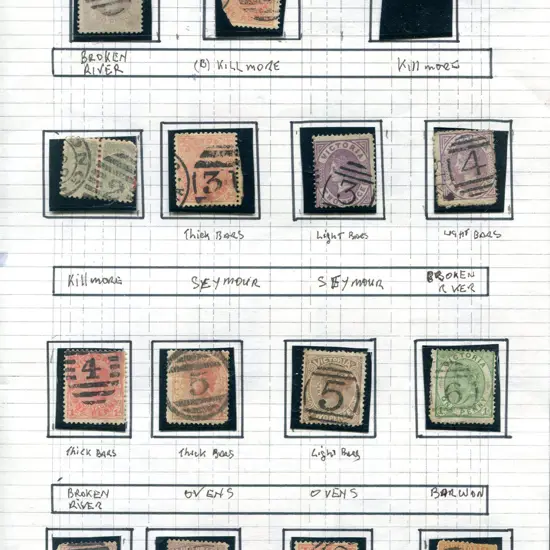 BROKEN RIVER (B) KILLMORE Killmore
3 3 4
VICTORIA
Thick BARS Light BARS LIGHT BARS
Killmore SEYMOUR SEYMOUR BROKEN RIVER
4 5 5 6
VICTORIA VICTORIA
Thick BARS Thick BARS Light BARS
BROKEN RIVER OVENS OVENS BARWON